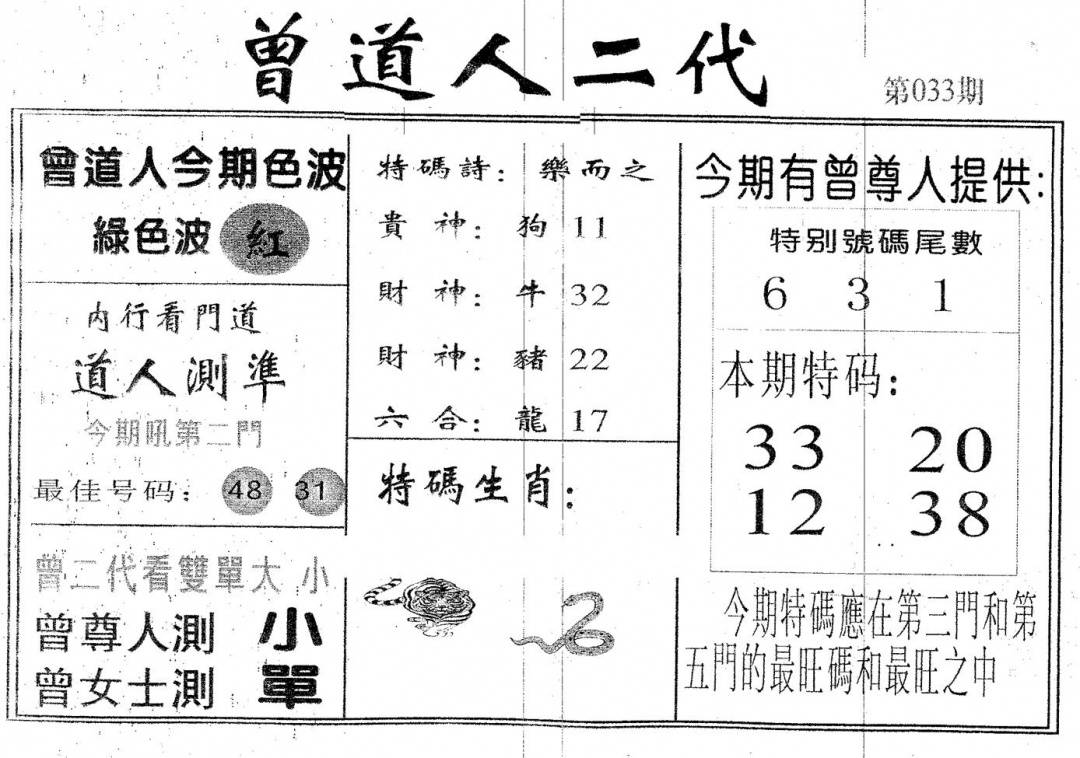 曾道人二代
第033期
曾道人今期色波
綠色波 紅
内行看門道
道人測準
今期吼第二門
最佳号码: 48 31
曾二代看雙單大 小
曾尊人測 小
曾女士測 單
特碼詩: 樂而之
貴神: 狗 11
財神: 牛 32
財神: 豬 22
六合: 龍 17
特碼生肖:
今期有曾尊人提供:
特別號碼尾數
6 3 1
本期特码:
33 20
12 38
今期特碼應在第三門和第
五門的最旺碼和最旺之中